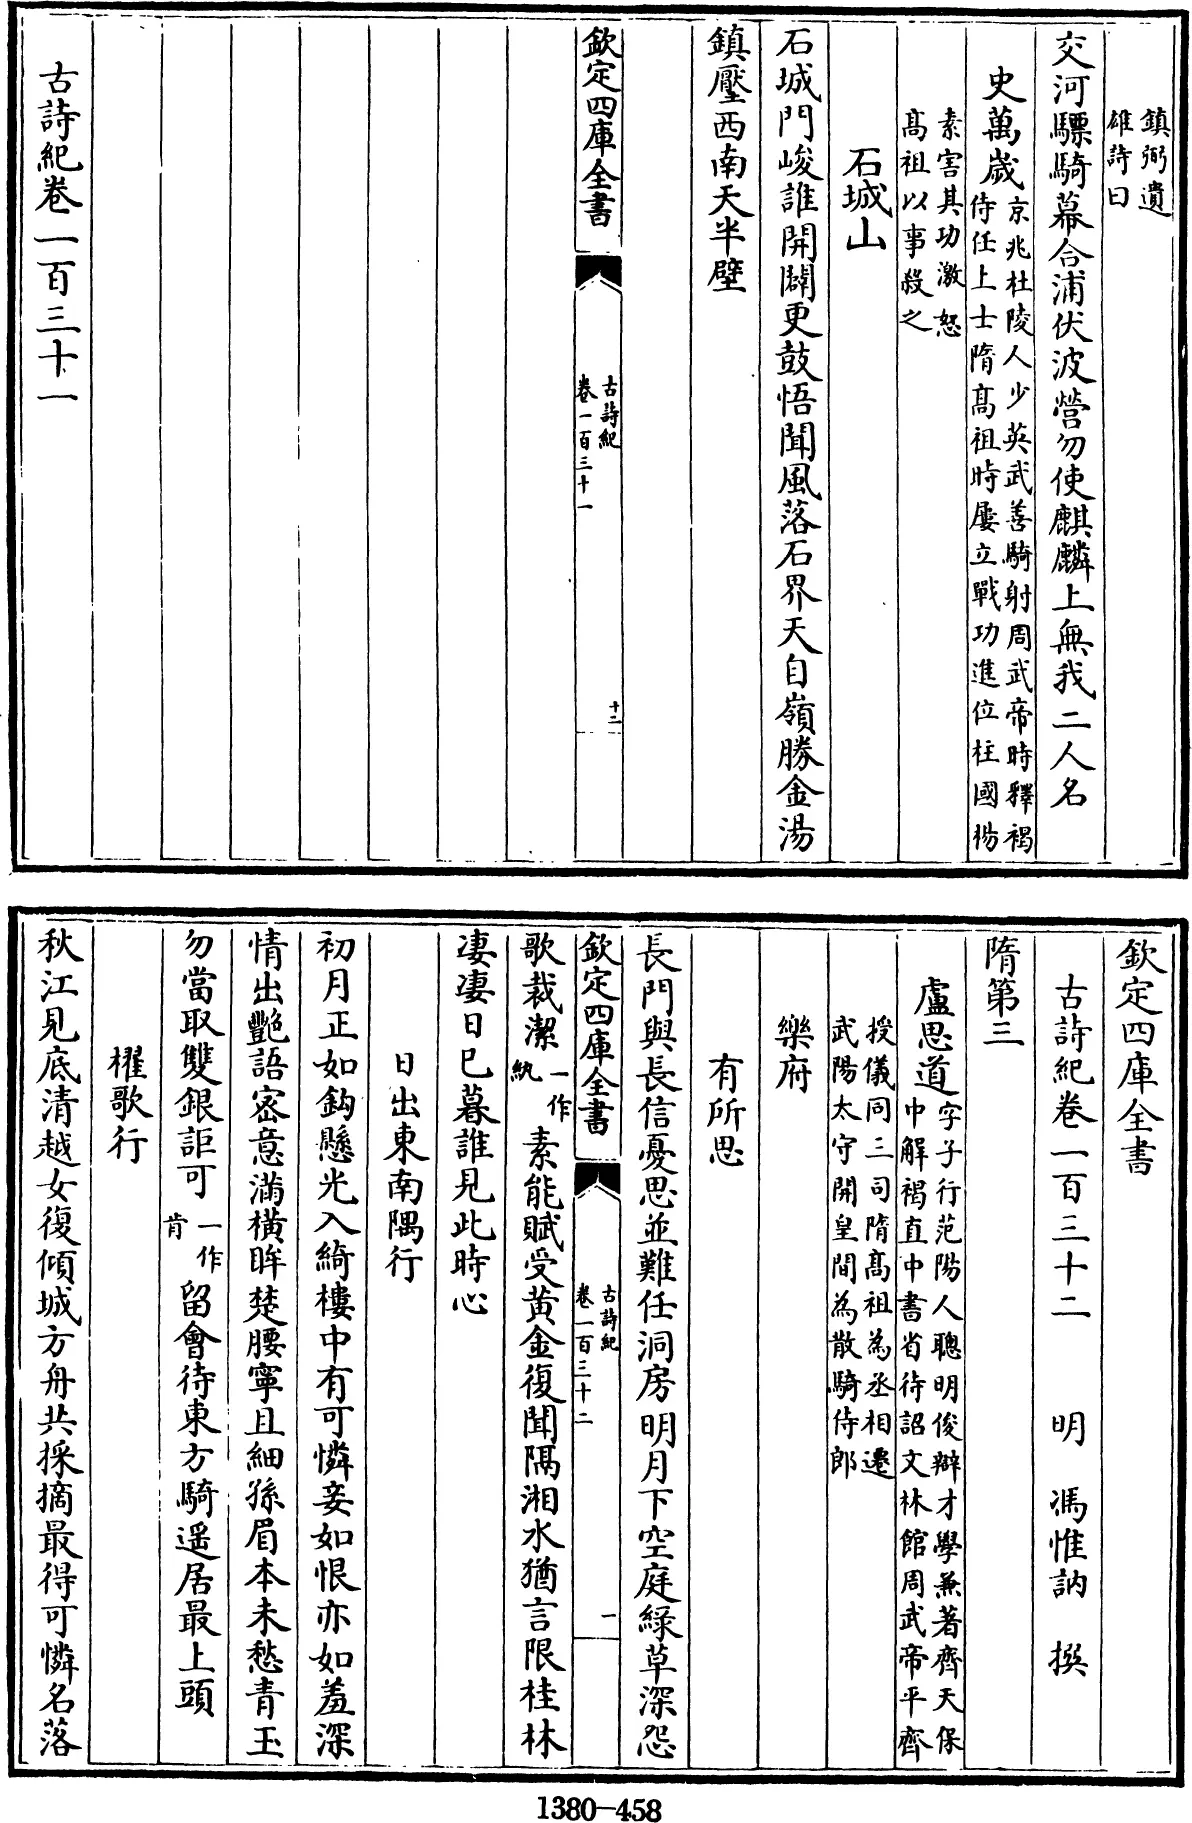 鎮弼遺
雄詩曰
交河驃騎幕合浦伏波營勿使麒麟上無我二人名
史萬歲京兆杜陵人少英武善騎射周武帝時釋褐
侍任上士隋高祖時屢立戰功進位柱國楊
素害其功激怒
高祖以事殺之
石城山
石城門峻誰開闢更鼓悟聞風落石界天自嶺勝金湯
鎮壓西南天半壁
欽定四庫全書
古詩紀
卷一百三十一
十二
古詩紀卷一百三十一
欽定四庫全書
古詩紀卷一百三十二 明 馮惟訥 撰
隋第三
盧思道字子行范陽人聰明俊辯才學兼著齊天保
中解褐直中書省待詔文林館周武帝平齊
授儀同三司隋高祖為丞相遷
武陽太守開皇間為散騎侍郎
樂府
有所思
長門與長信憂思並難任洞房明月下空庭綠草深怨
欽定四庫全書
古詩紀
卷一百三十二
一
歌裁潔一作紈素能賦受黄金復聞隔湘水猶言限桂林
凄凄日已暮誰見此時心
日出東南隅行
初月正如鈎懸光入綺樓中有可憐妾如恨亦如羞深
情出艷語密意滿橫眸楚腰寧且細孫眉本未愁青玉
勿當取雙銀詎可一作肯留會待東方騎遥居最上頭
櫂歌行
秋江見底清越女復傾城方舟共採摘最得可憐名落
1380-458